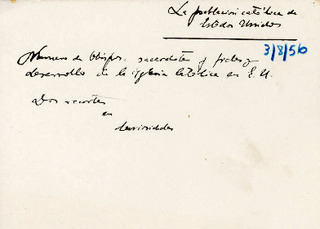 La población católica de
Estados Unidos
3/8/56
Número de Obispos, sacerdotes y fieles y
desarrollo de la iglesia Católica en E.U.
Dos recortes
en
Curiosidades